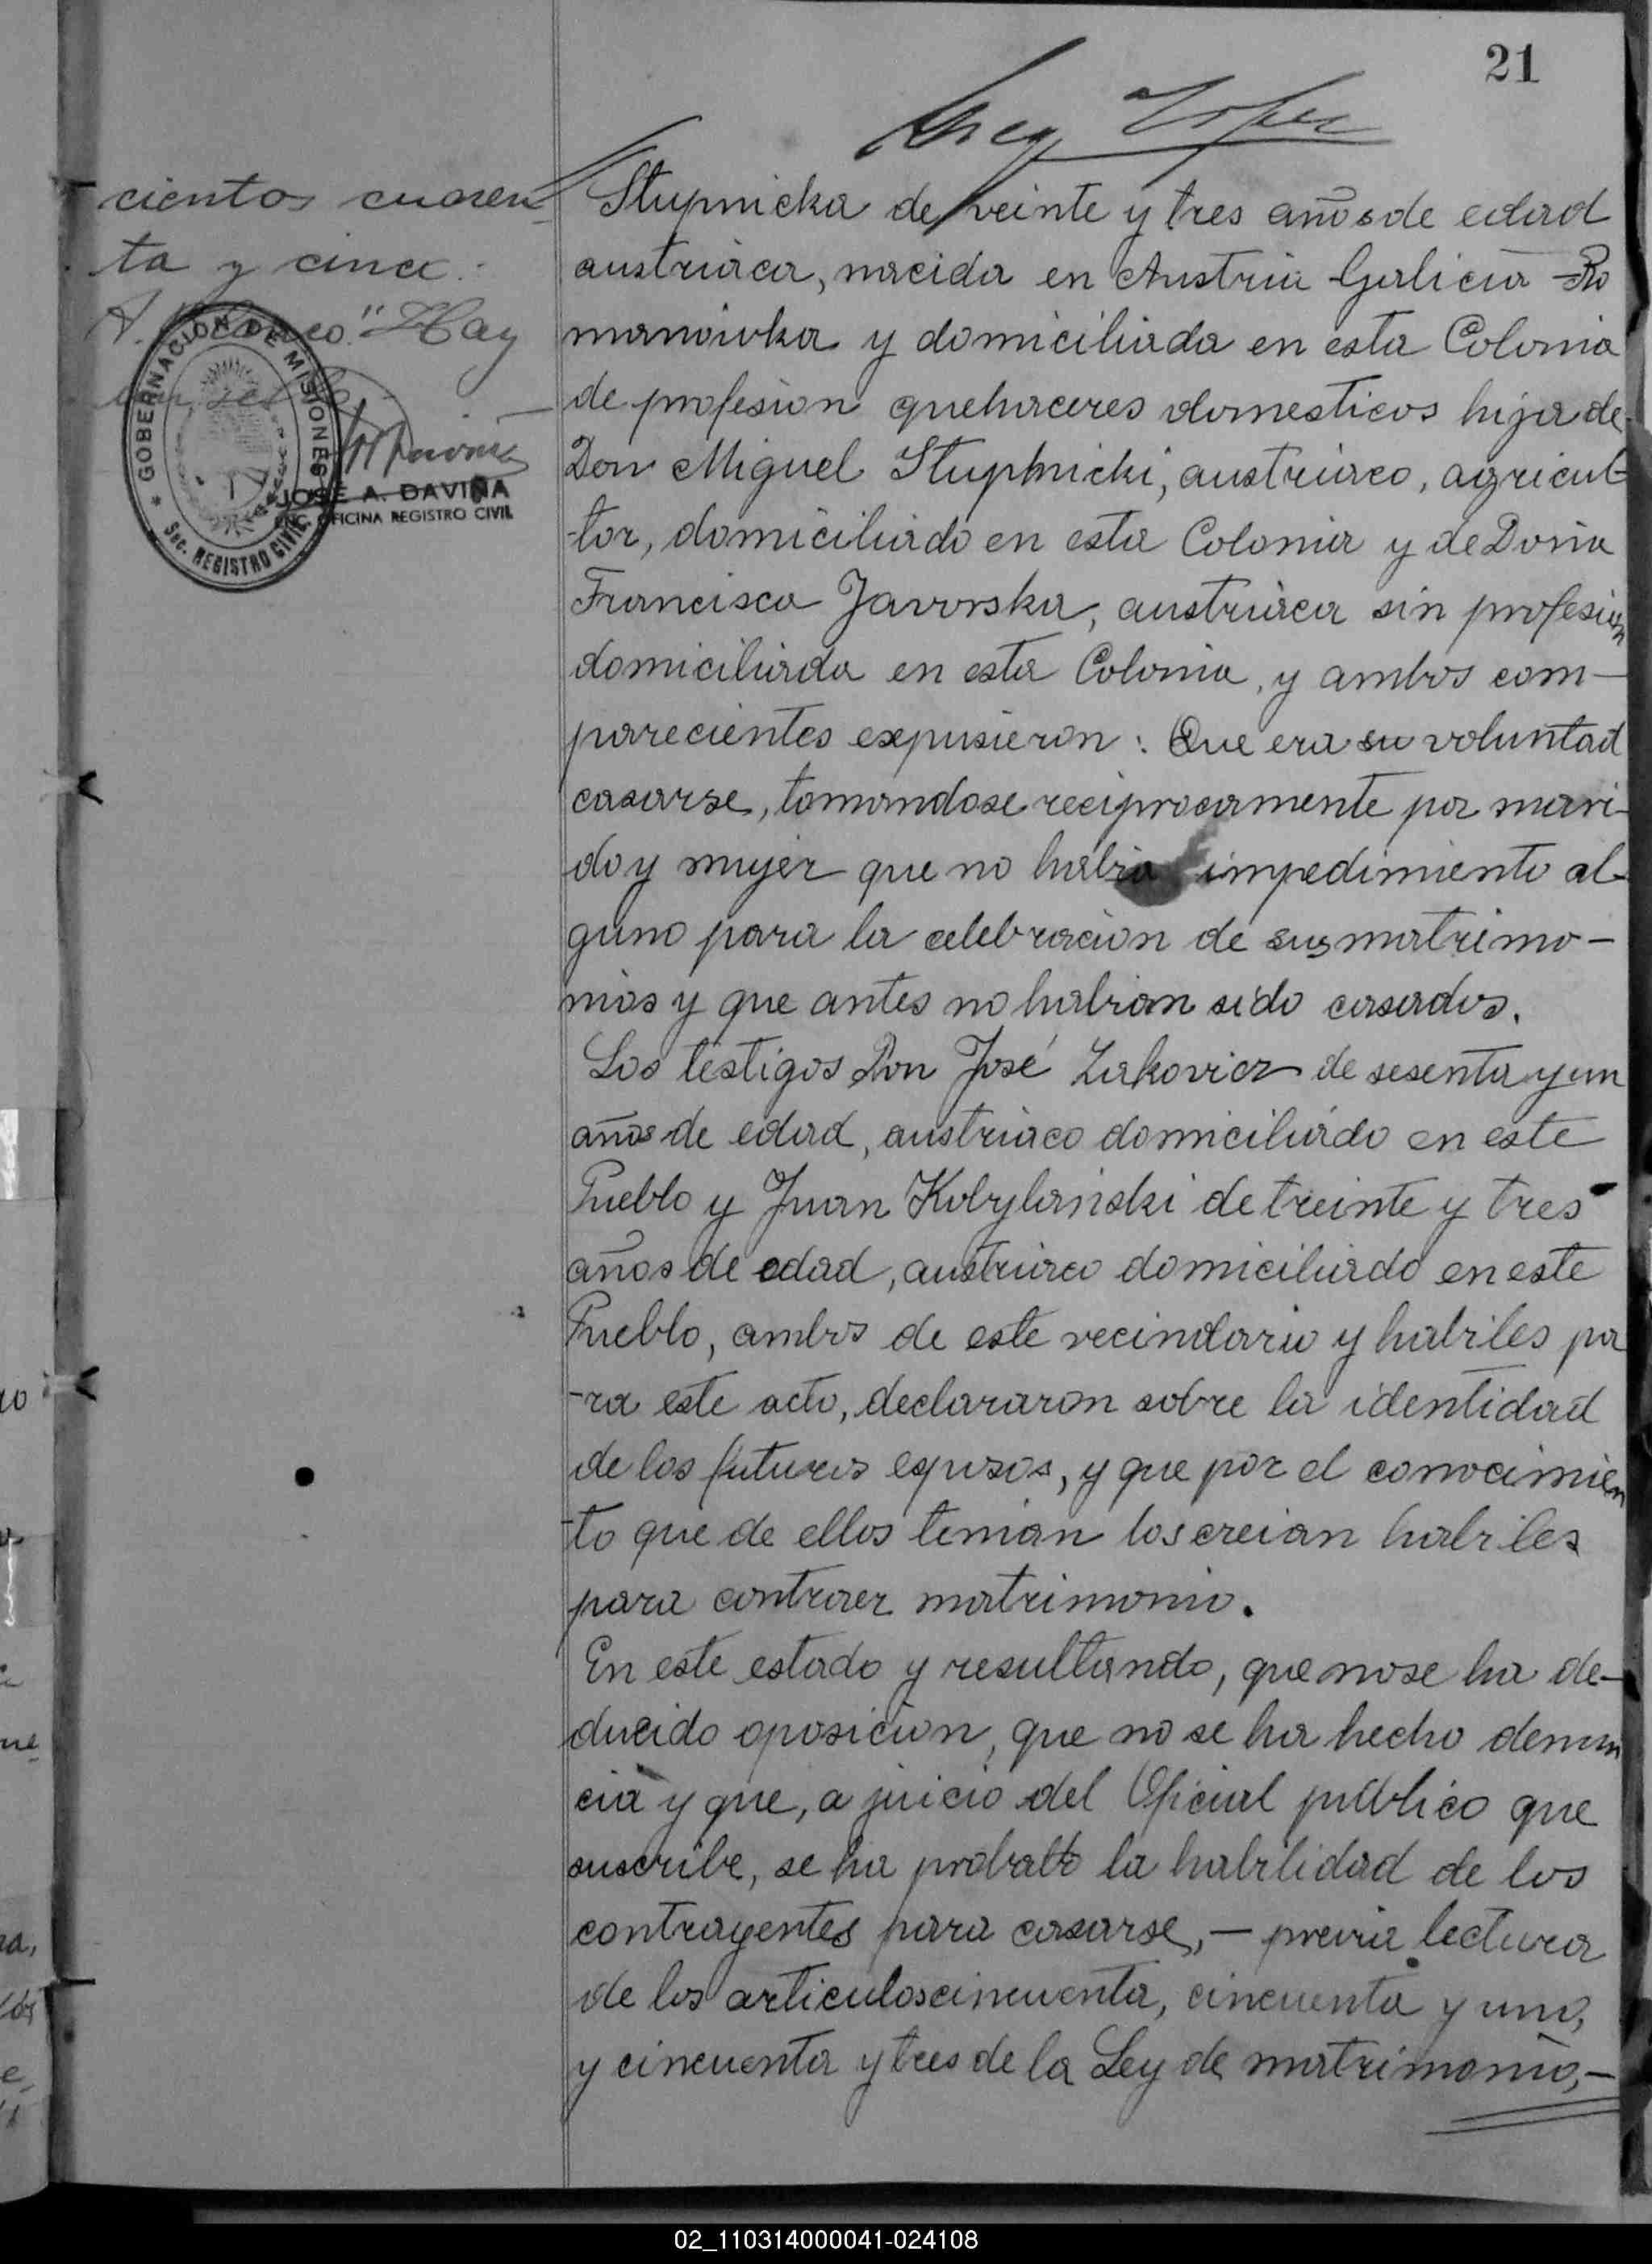 21
cientos cuaren-
ta y cinco.-
Hay
un sello
GOBERNACION DE MISIONES
Sec. REGISTRO CIVIL
JOSÉ A. DAVIÑA
OFICINA REGISTRO CIVIL
Stupnicka de veinte y tres años de edad
austriaca, nacida en Austria Galicia - Ro
manowka y domiciliada en esta Colonia
de profesion quehaceres domesticos hija de
Don Miguel Stuphnicki, austriaco, agricul-
-tor, domiciliado en esta Colonia y de Doña
Francisca Javorska, austriaca sin profesion
domiciliada en esta Colonia, y ambos com-
parecientes expusieron: Que era su voluntad
casarse, tomandose reciprocamente por mari-
do y mujer que no habia impedimiento al-
guno para la celebracion de sus matrimo-
nios y que antes no habian sido casados.
Los testigos Don José Zakovicz de sesenta y un
años de edad, austriaco domiciliado en este
Pueblo y Juan Kobylański de treinte y tres
años de edad, austriaco domiciliado en este
Pueblo, ambos de este vecindario y habiles pa
-ra este acto, declararon sobre la identidad
de los futuros esposos, y que por el conocimien
-to que de ellos tenian los creian habiles
para contraer matrimonio.
En este estado y resultando, que no se ha de-
ducido oposicion, que no se ha hecho denun
cia y que, a juicio del Oficial publico que
suscribe, se ha probado la habilidad de los
contrayentes para casarse, - previa lectura
de los articulos cincuenta, cincuenta y uno,
y cincuenta y tres de la Ley de matrimonio,-
02_110314000041-024108